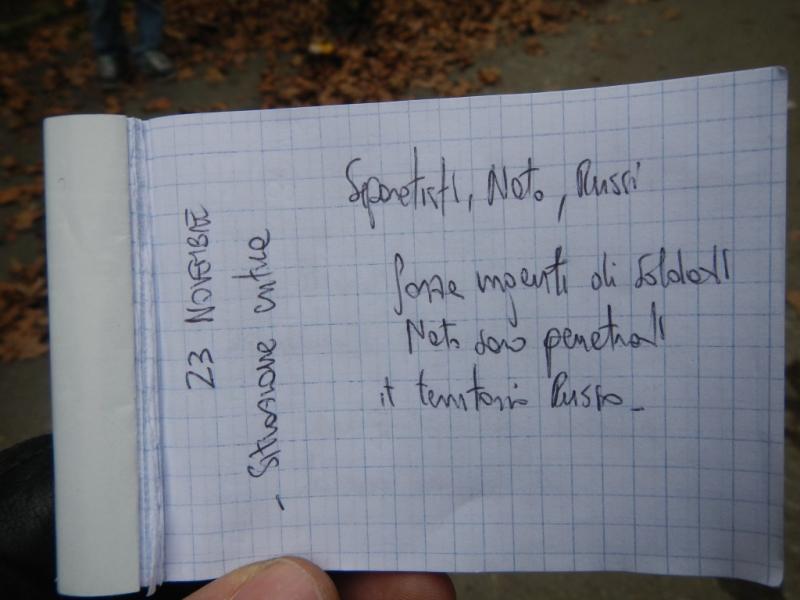 23 NOVEMBRE
- Situazione critica
Separatisti, Nato, Russi
forze ingenti di soldati
Nato sono penetrati
il territorio Russo_